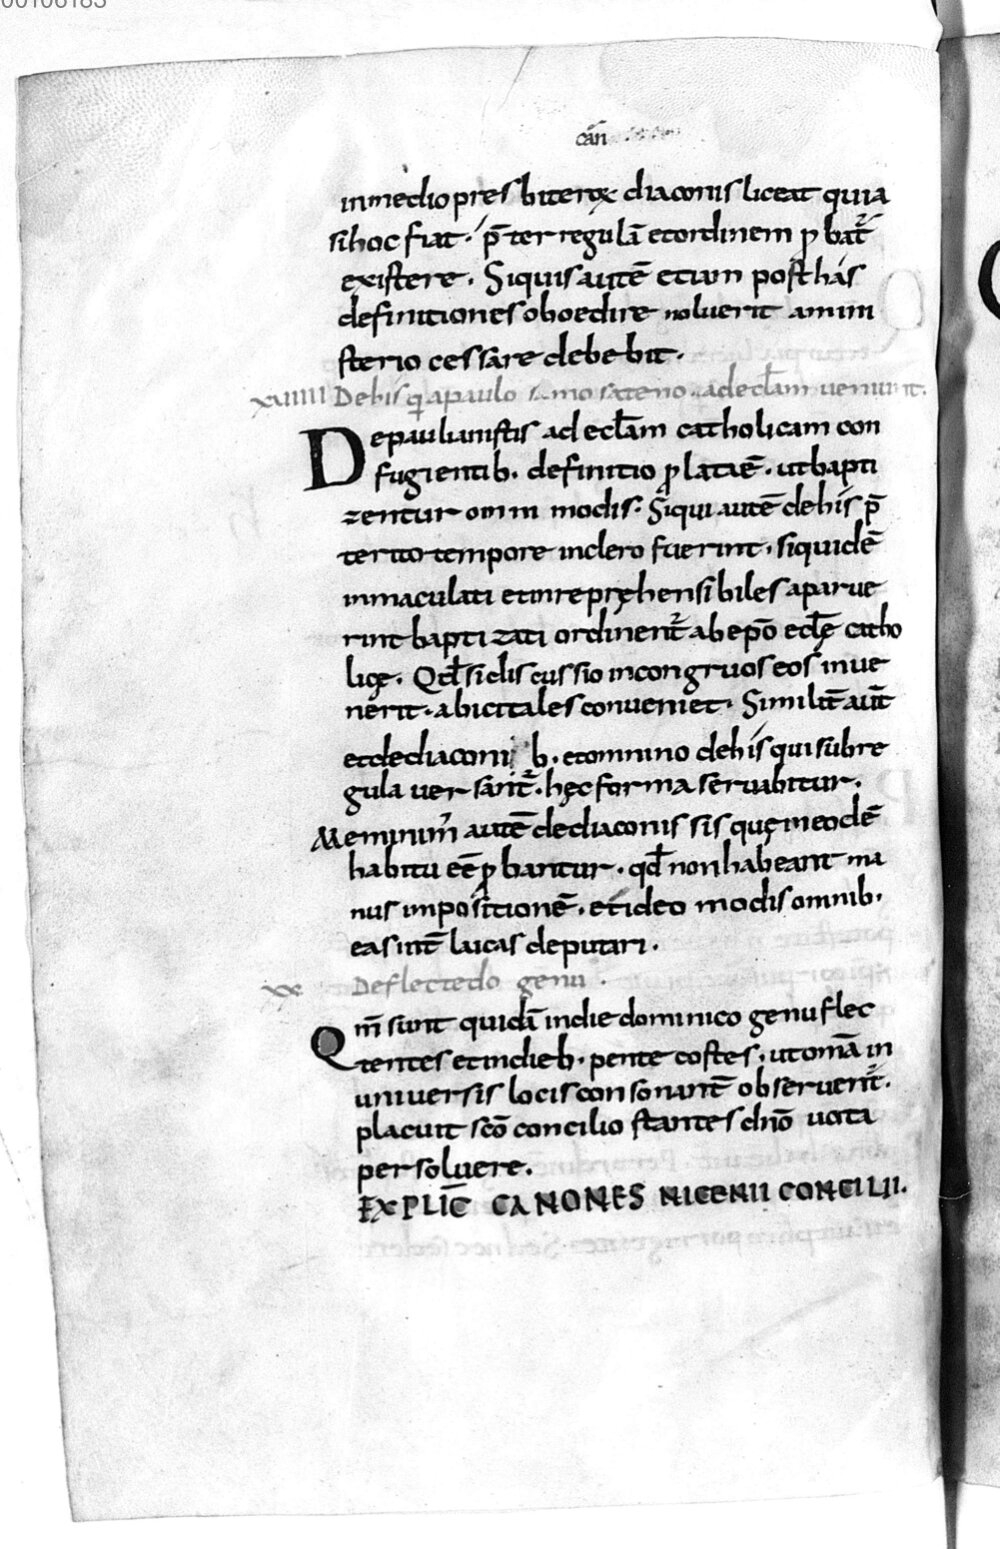 00106183
cān
inmedio presbiteroꝝ diaconis liceat quia
sihoc fiat · p̄ter regulā etordinem ꝓbat᷑
existere . Siquisautē etiam posthás
definitiones oboedire noluerit amini
sterio cessare debebit .
xviiii Dehis q apaulo samosateno adecl̄am veniunt .
Depaulianistis adecl̄am catholicam con
fugientib . definitio ꝓlataē . utbapti
zentur omni modis . Siqui autē dehís p̄
terito tempore inclero fuerint , siquidē
inmaculati etinrepręhensibiles aparue
rint baptizati ordinent᷑ abepō ecl̄ę catho
licę . Qd̄ sidiscussio incongruos eos inue
nerit . abicitales conveniet . Similit̄ aūt
etdediaconi b . etomnino dehís qui subre
gula versant᷑ . hęc forma servabitur .
Meminim᷒ autē dediaconissis quę ineodē
habitu eē ꝓbantur . qd̄ non habeant ma
nus impositionē . et ideo modis omnib .
eas int̄ laicas deputari .
xx Deflectedo genu .
Qm̄ sunt quidā indie dominico genu flec
tentes etindieb . pentecostes , utomā in
universis locis consonant̄ observent᷑ .
placuit scō concilio stantes dnō vota
persolvere .
EXPLIC̄ CANONES NICENII CONCILII .